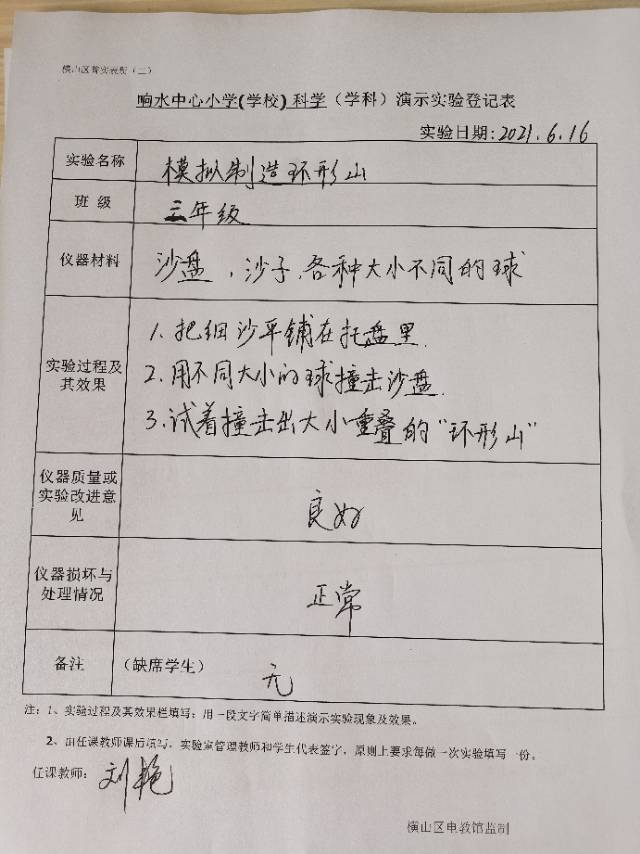 横山区教实表册（二）
响水中心小学(学校)科学（学科）演示实验登记表
实验日期:2021.6.16
实验名称 模拟制造环形山
班 级 三年级
仪器材料 沙盘，沙子，各种大小不同的球
实验过程及其效果
1.把细沙平铺在托盘里.
2.用不同大小的球撞击沙盘.
3.试着撞击出大小重叠的“环形山”
仪器质量或
实验改进意
见
良好
仪器损坏与
处理情况
正常
备注 （缺席学生） 无
注：1、实验过程及其效果栏填写：用一段文字简单描述演示实验现象及效果。
2、由任课教师课后填写，实验室管理教师和学生代表签字，原则上要求每做一次实验填写一份。
任课教师：刘艳
横山区电教馆监制